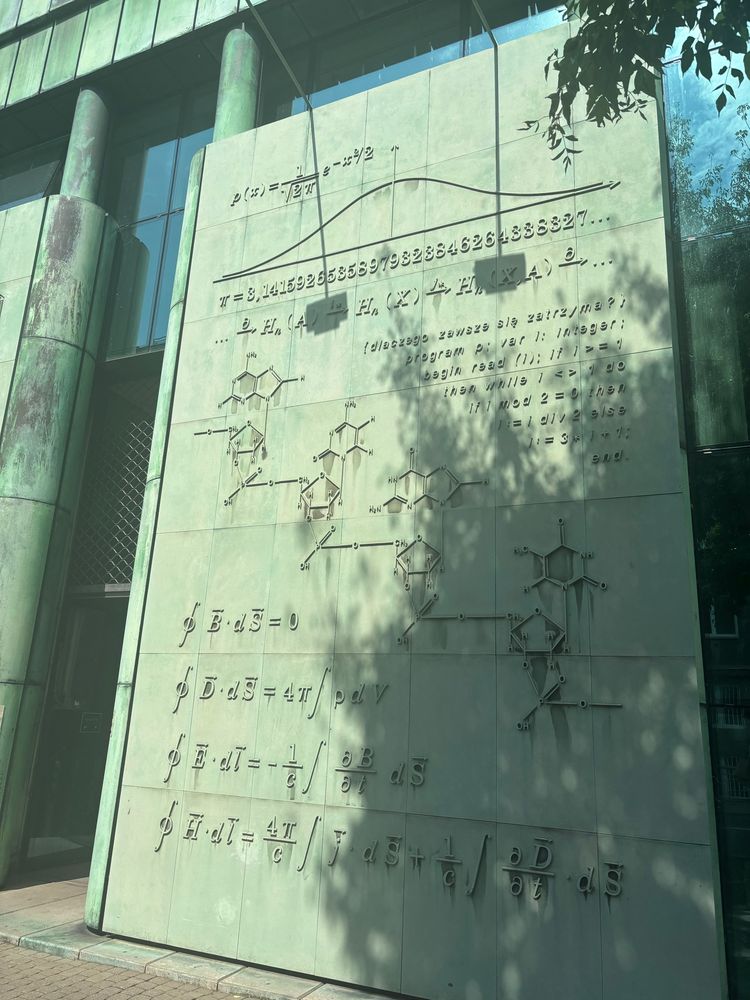 p(x) = 1/√2π e^-x²/2
π = 3,14159265358979323846264338327...
... ∂→ Hₙ(A) i*→ Hₙ(X) j*→ Hₙ(X,A) ∂→ ...
{dlaczego zawsze się zatrzyma?}
program p; var i: integer;
begin read (i); if i >= 1
then while i <> 1 do
if i mod 2 = 0 then
i := i div 2 else
i := 3 * i + 1;
end.
∮ B̄ · dS̄ = 0
∮ D̄ · dS̄ = 4π ∫ ρ dV
∮ Ē · dl̄ = - 1/c ∫ ∂B̄/∂t dS̄
∮ H̄ · dl̄ = 4π/c ∫ j̄ · dS̄ + 1/c ∫ ∂D̄/∂t · dS̄